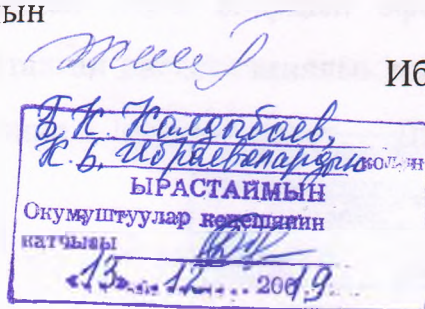 ын
Иб
Б.К. Калдыбаев,
К.Б. Ибраевалардын колун
ЫРАСТАЙМЫН
Окумуштуулар кеңешинин
катчысы
«13» 12 2019